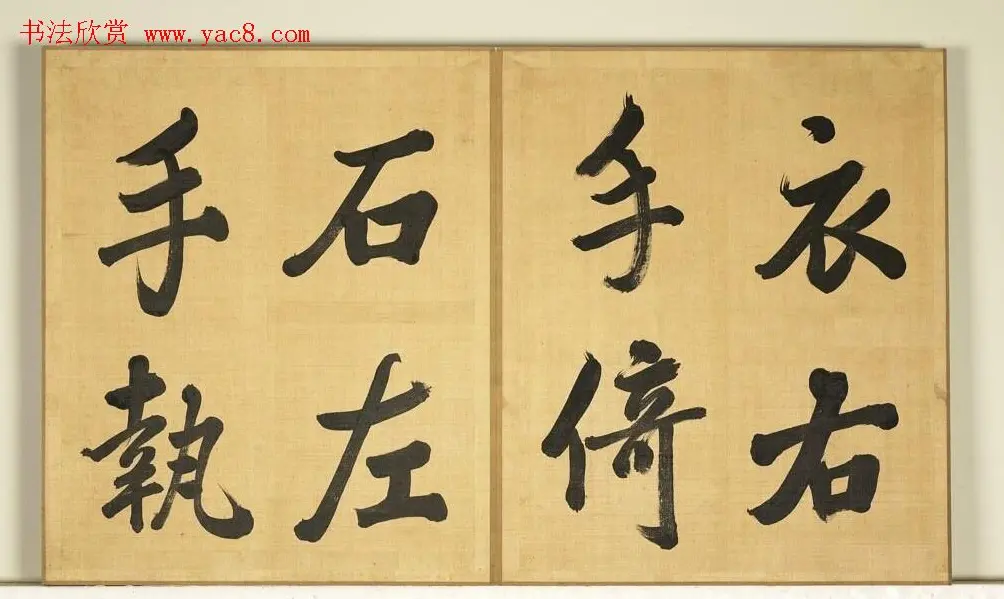 书法欣赏 www.yac8.com
衣右
手倚
石左
手執